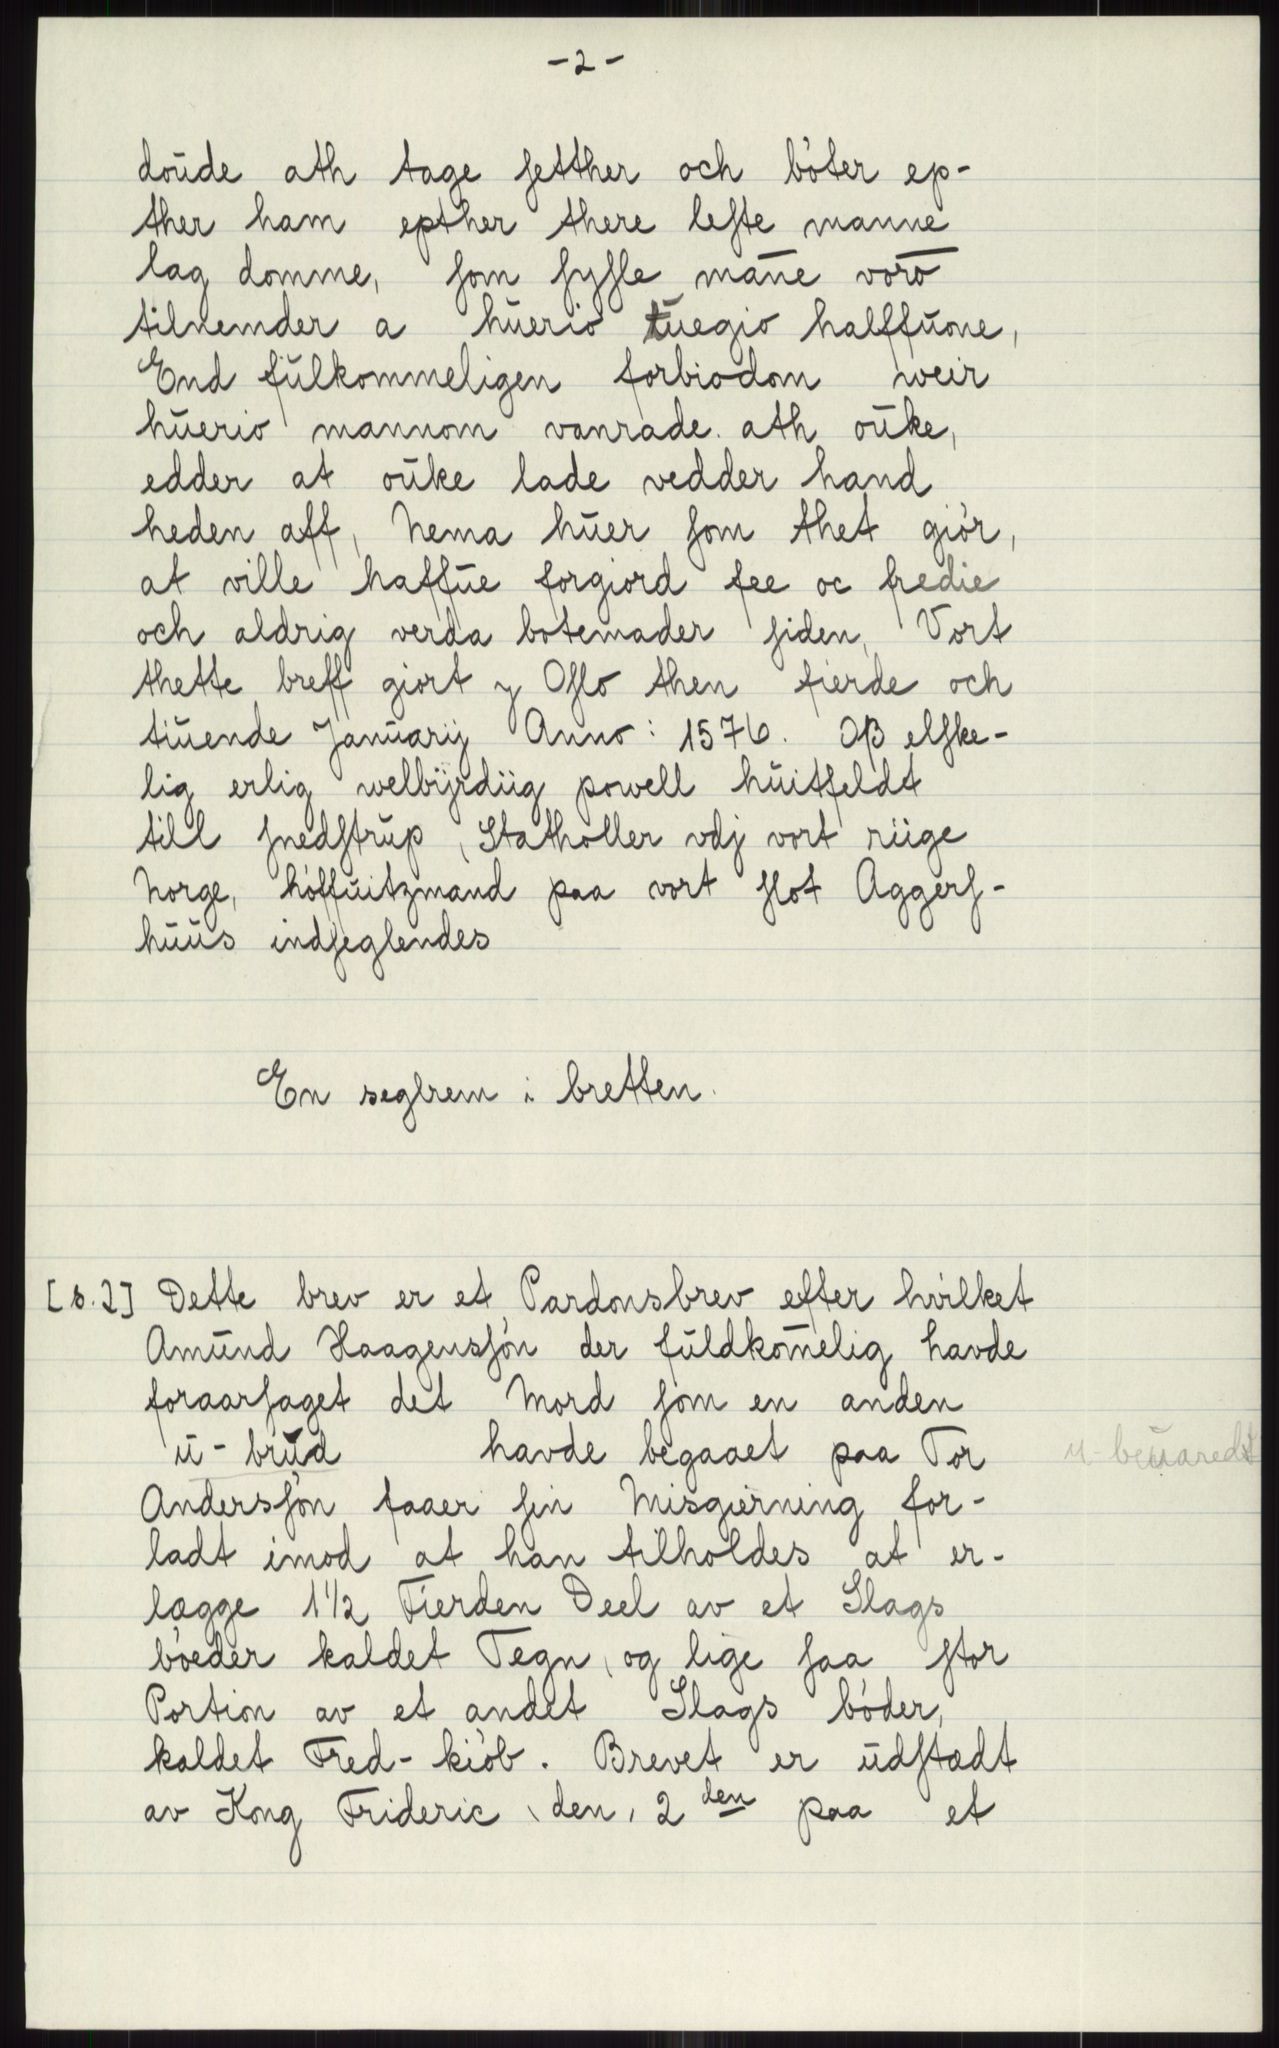 -2-
doude ath tage ſetther och böter ep-
ther ham epther there leſte manne
lag domme, ſom ſyſle māne vorō
tilnemder a huerio tuegio halffuone,
End fulkommeligen forbiodom weir
huerio mannom vanrade. ath ouke,
edder at ouke lade vedder hand
heden aff, Nema huer ſom thet giör,
at ville haffue forgiord fee oc fredie
och aldrig verda botemader ſiden, Vort
thette breff giort y Oſlo then fierde och
tiuende Januarij Anno: 1576. Oß elſke-
lig erlig welbijrdiig powell huitfeldt
till ſnedſtrup, Statholler vdj vort riige
Norge, höffuitzmand paa vort ſlot Aggerſ-
huus indſeglendes
En seglrem i bretten.
[s.2] Dette brev er et Pardonsbrev efter hvilket
Amund Haagensſön der fuldkom̄elig havde
foraarſaget det Mord ſom en anden
u-brud havde begaaet paa Tor u-beuaredt
Andersſön faaer ſin Misgierning for-
ladt imod at han tilholdes at er-
lægge 1 1/2 Fierden Deel av et Slags
böeder kaldet Tegn, og lige ſaa ſtor
Portion av et andet Slags böder,
kaldet Fred-kiöb. Brevet er udſtædt
av Kong Frideric den 2den paa et